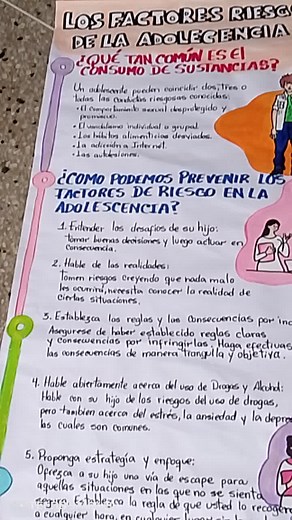 LOS FACTORES RIESG
DE LA ADOLECENCIA
¿QUÉ TAN COMÚN ES El
CONSUMO DE SUSTANCIAS?
Un adolescente pueden coincidir dos, Tres o
todas las conductas riesgosas conocidas:
• El comportamiento sexual desprotegido y
promiscuo.
• El vandalismo individual o grupal.
• Los hábitos alimenticios desviados.
• La adicción a Internet.
• Las autolesiones.
¿COMO PODEMOS PREVENIR LOS
FACTORES DE RIESGO EN LA
ADOLESCENCIA?
1. Entender los desafios de su hijo:
tomar buenas decisiones y luego actuar en
consecuencia.
2. Hable de las realidades:
tomen riesgos creyendo que nada malo
les ocurrirá, necesita conocer la realidad de
ciertas situaciones.
3. Establezca las reglas y las consecuencias por inc
Asegurese de haber establecido reglas claras
y consecuencias por infringirlas. Haga efectivas
las consecuencias de manera tranquila y objetiva.
4. Hable abiertamente acerca del uso de Drogas y Alcohol:
Hable con su hijo de los riesgos del uso de drogas,
pero tambien acerca del estrés, la ansiedad y la depre
las cuales son comunes.
5. Proponga estrategía y enfoque:
Oprezca a su hijo una vía de escape para
aquellas situaciones en las que no se sienta
seguro. Establezca la regla de que usted lo recoger
a cualquier hora, en cualquier